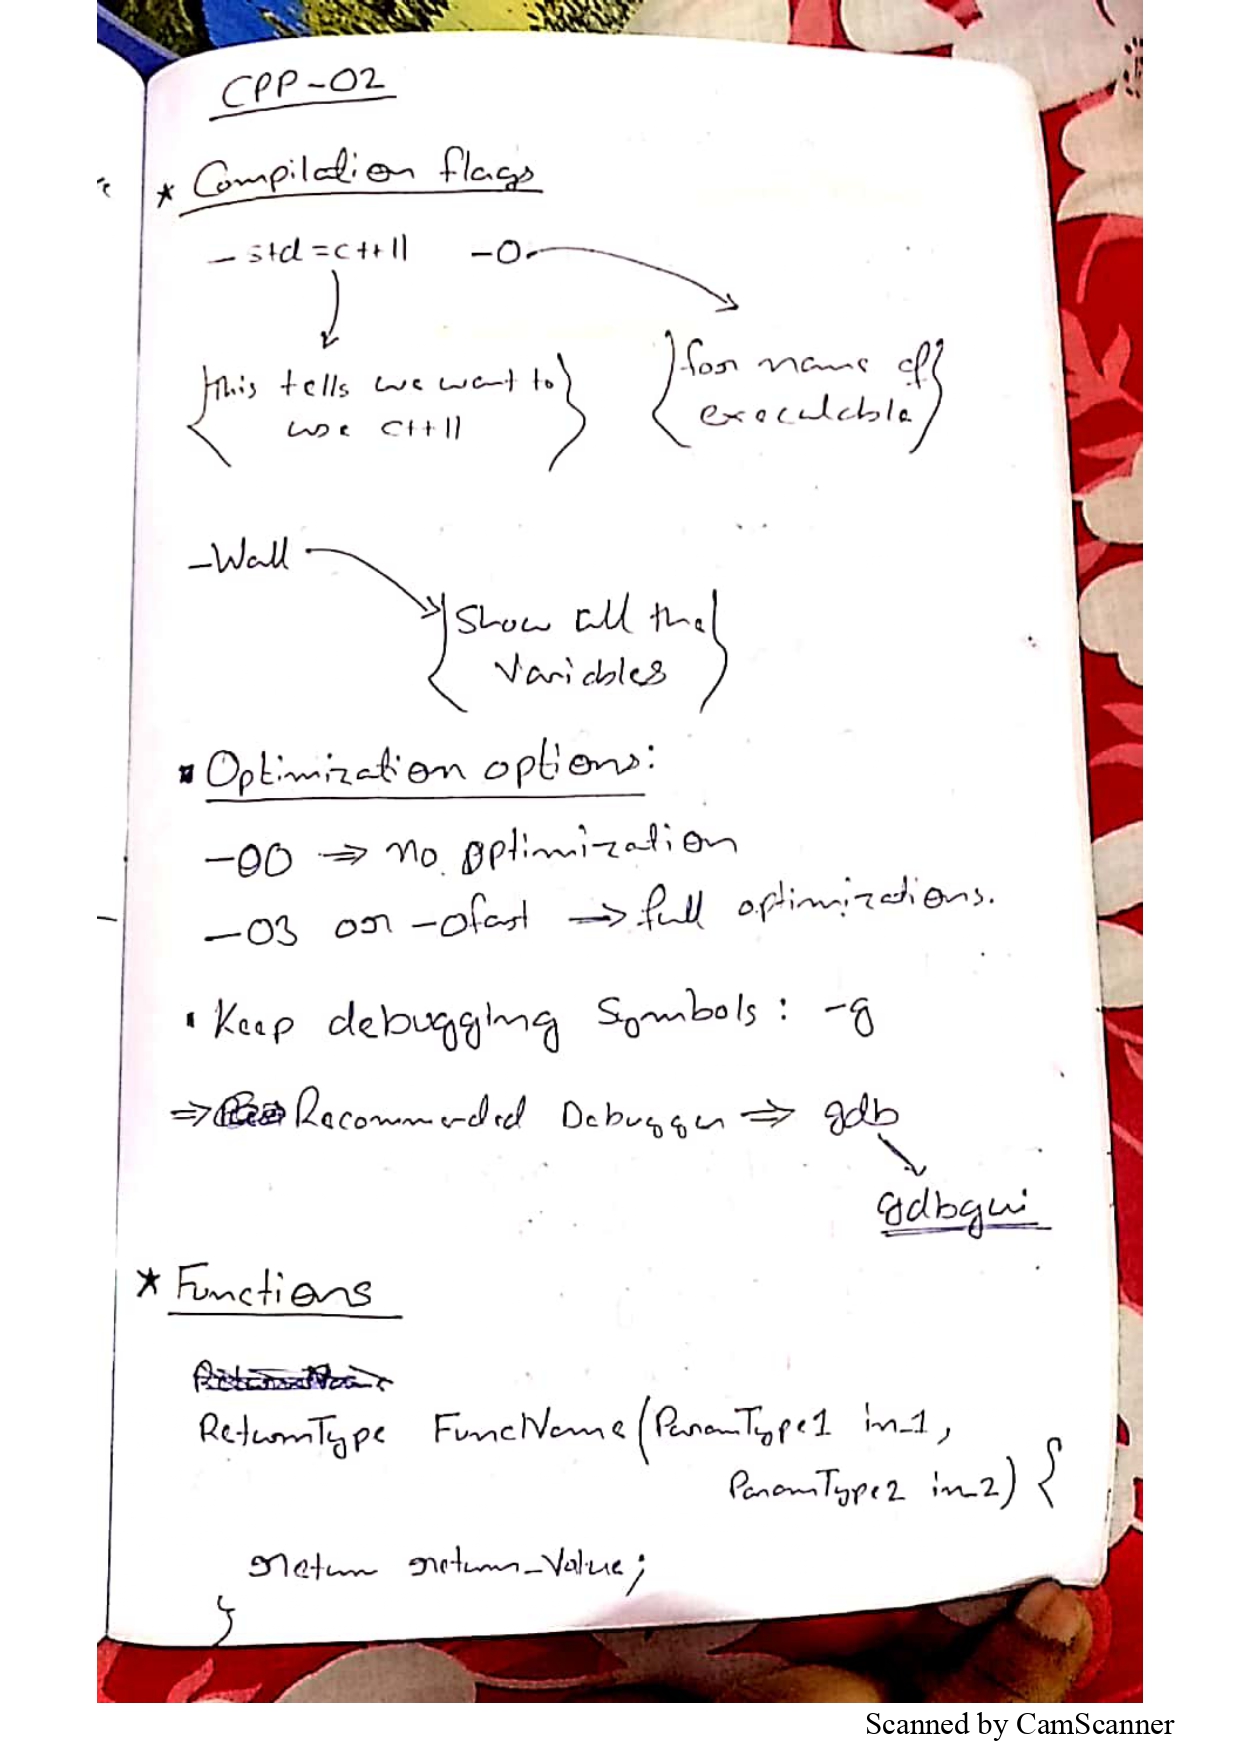 CPP-02
* Compilation flags
- std = c++11 -o
{this tells we want to use c++11}
{for name of executable}
-Wall
{Show all the variables}
▪ Optimization options:
-O0 ⇒ no optimization
-O3 or -Ofast → full optimizations.
▪ Keep debugging Symbols: -g
⇒ Recommended Debugger ⇒ gdb
gdbgui
* Functions
ReturnType FuncName(ParamType1 in_1,
ParamType2 in_2) {
return return_Value;
}
Scanned by CamScanner